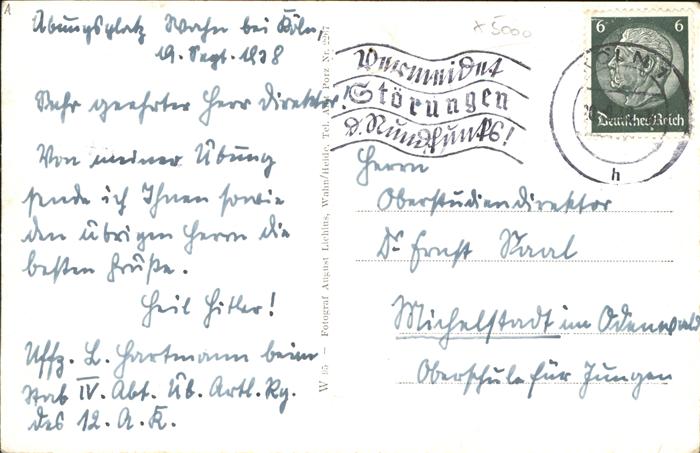 Übungsplatz Wahn bei Köln,
19. Sept. 1938
Sehr geehrter Herr Direktor!
Von meiner Übung
sende ich Ihnen sowie
den übrigen Herrn die
besten Grüße.
Heil Hitler!
Uffz. L. Hartmann beim
Stab IV. Abt. Üb. Artl. Rg.
des 12. A.K.
W 95 – Fotograf August Lichius, Wahn/Heide, Tel. Amt Porz Nr. 2267
x 5000
Vermeidet
Störungen
d. Rundfunks!
6 6
Deutsches Reich
h
Herrn
Oberstudiendirektor
Dr Ernst Saal
Michelstadt im Odenwald
Oberschule für Jungen